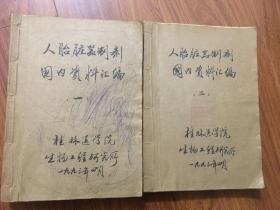 人胎脏器制剂
国内资料汇编
(一)
桂林医学院
生物工程研究所
一九九二年四月
人胎脏器制剂
国内资料汇编
(二)
桂林医学院
生物工程研究所
一九九二年四月